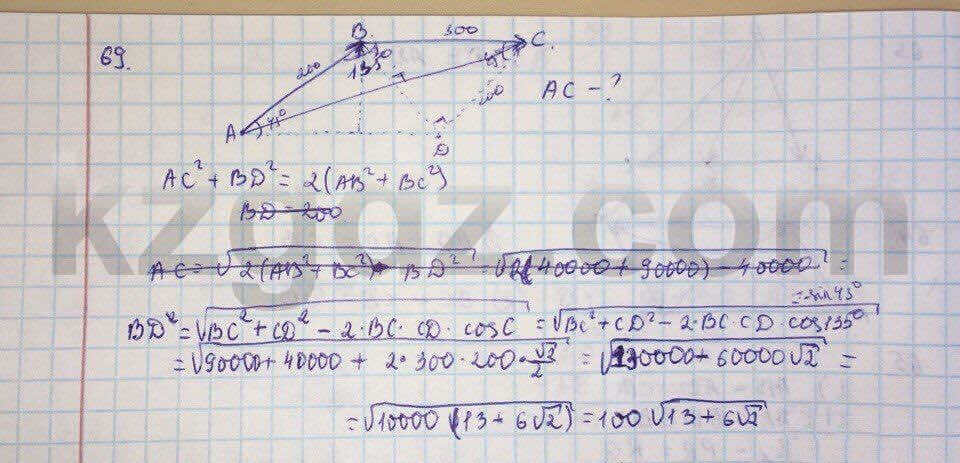 69.
B 300 C.
200 135°
A 45° 200 AC - ?
D
AC² + BD² = 2(AB² + BC²)
BD = 200
AC = √2(AB² + BC²) - BD² = √2(40000 + 90000) - 40000 =
= -sin45°
BD² = √BC² + CD² - 2·BC·CD·cosC = √BC² + CD² - 2·BC·CD·cos135°
= √90000 + 40000 + 2·300·200·√2/2 = √130000 + 60000√2 =
= √10000(13 + 6√2) = 100√13 + 6√2
kzgdz.com